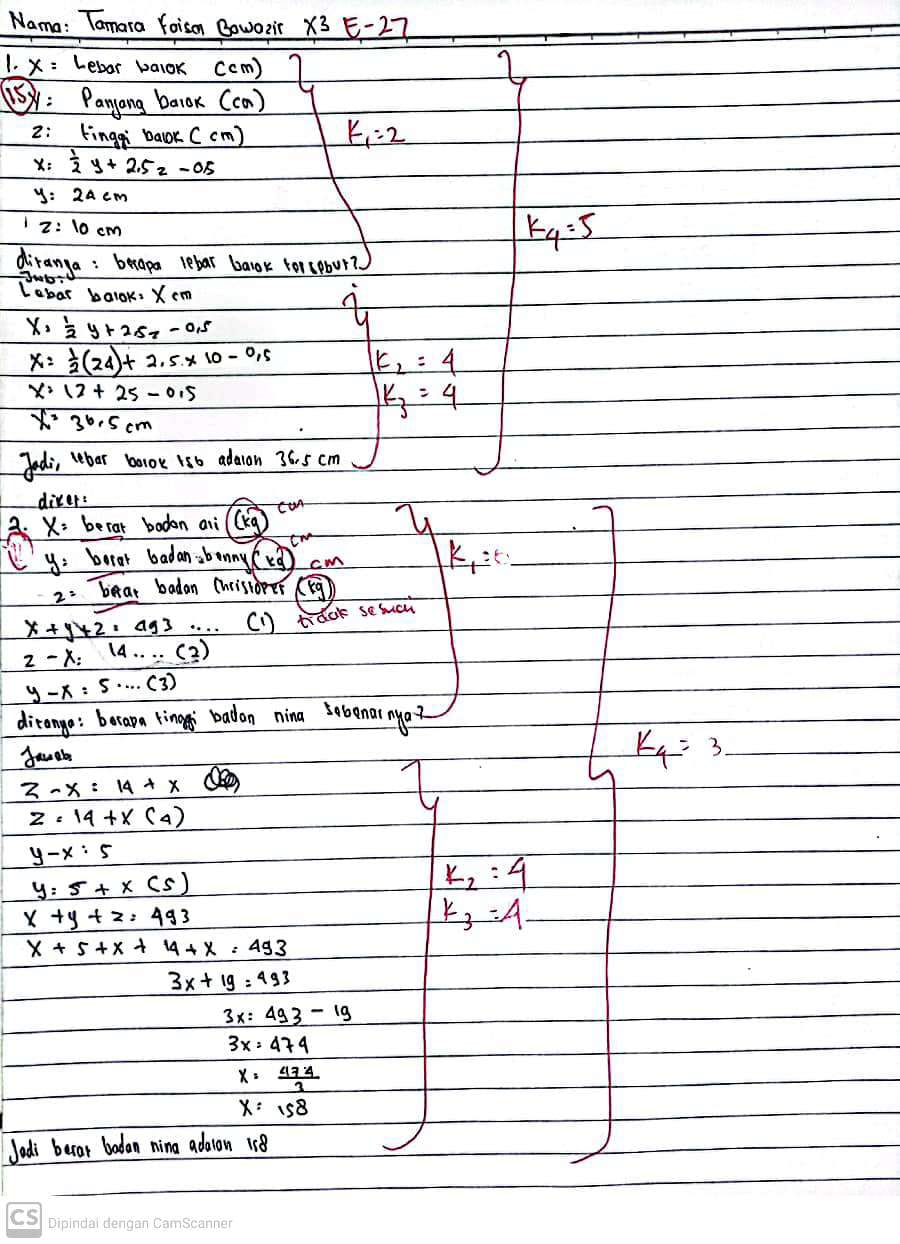 Nama: Tamara Faisa Bawazir X3 E-27
1. X = Lebar balok (cm)
15 y: Panjang balok (cm)
z: tinggi balok (cm)
K1 = 2
x: 1/2 y + 2,5 z - 0,5
y: 24 cm
z: 10 cm
K4 = 5
ditanya: berapa lebar balok tersebut?
Jwb:
Lebar balok: X cm
X = 1/2 y + 2,5z - 0,5
X = 1/2 (24) + 2,5 x 10 - 0,5
K2 = 4
X = 12 + 25 - 0,5
K3 = 4
X = 36,5 cm
Jadi, lebar balok tsb adalah 36,5 cm
diket:
2. X = berat badan ari (kg) cm
11 y: berat badan benny (kg) cm
K1 =
z = berat badan Christoper (kg) cm
tidak sesuai
X + y + z = 493 .... (1)
z - X: 14 .... (2)
y - X = 5 .... (3)
ditanya: berapa tinggi badan nina sebenarnya?
K4 = 3
Jawab
z - x = 14 + x
z = 14 + X (4)
y - x = 5
K2 = 4
y: 5 + x (5)
K3 = 4
X + y + z = 493
X + 5 + x + 14 + X = 493
3x + 19 = 493
3x = 493 - 19
3x = 474
X = 474/3
X = 158
Jadi berat badan nina adalah 158
CS Dipindai dengan CamScanner